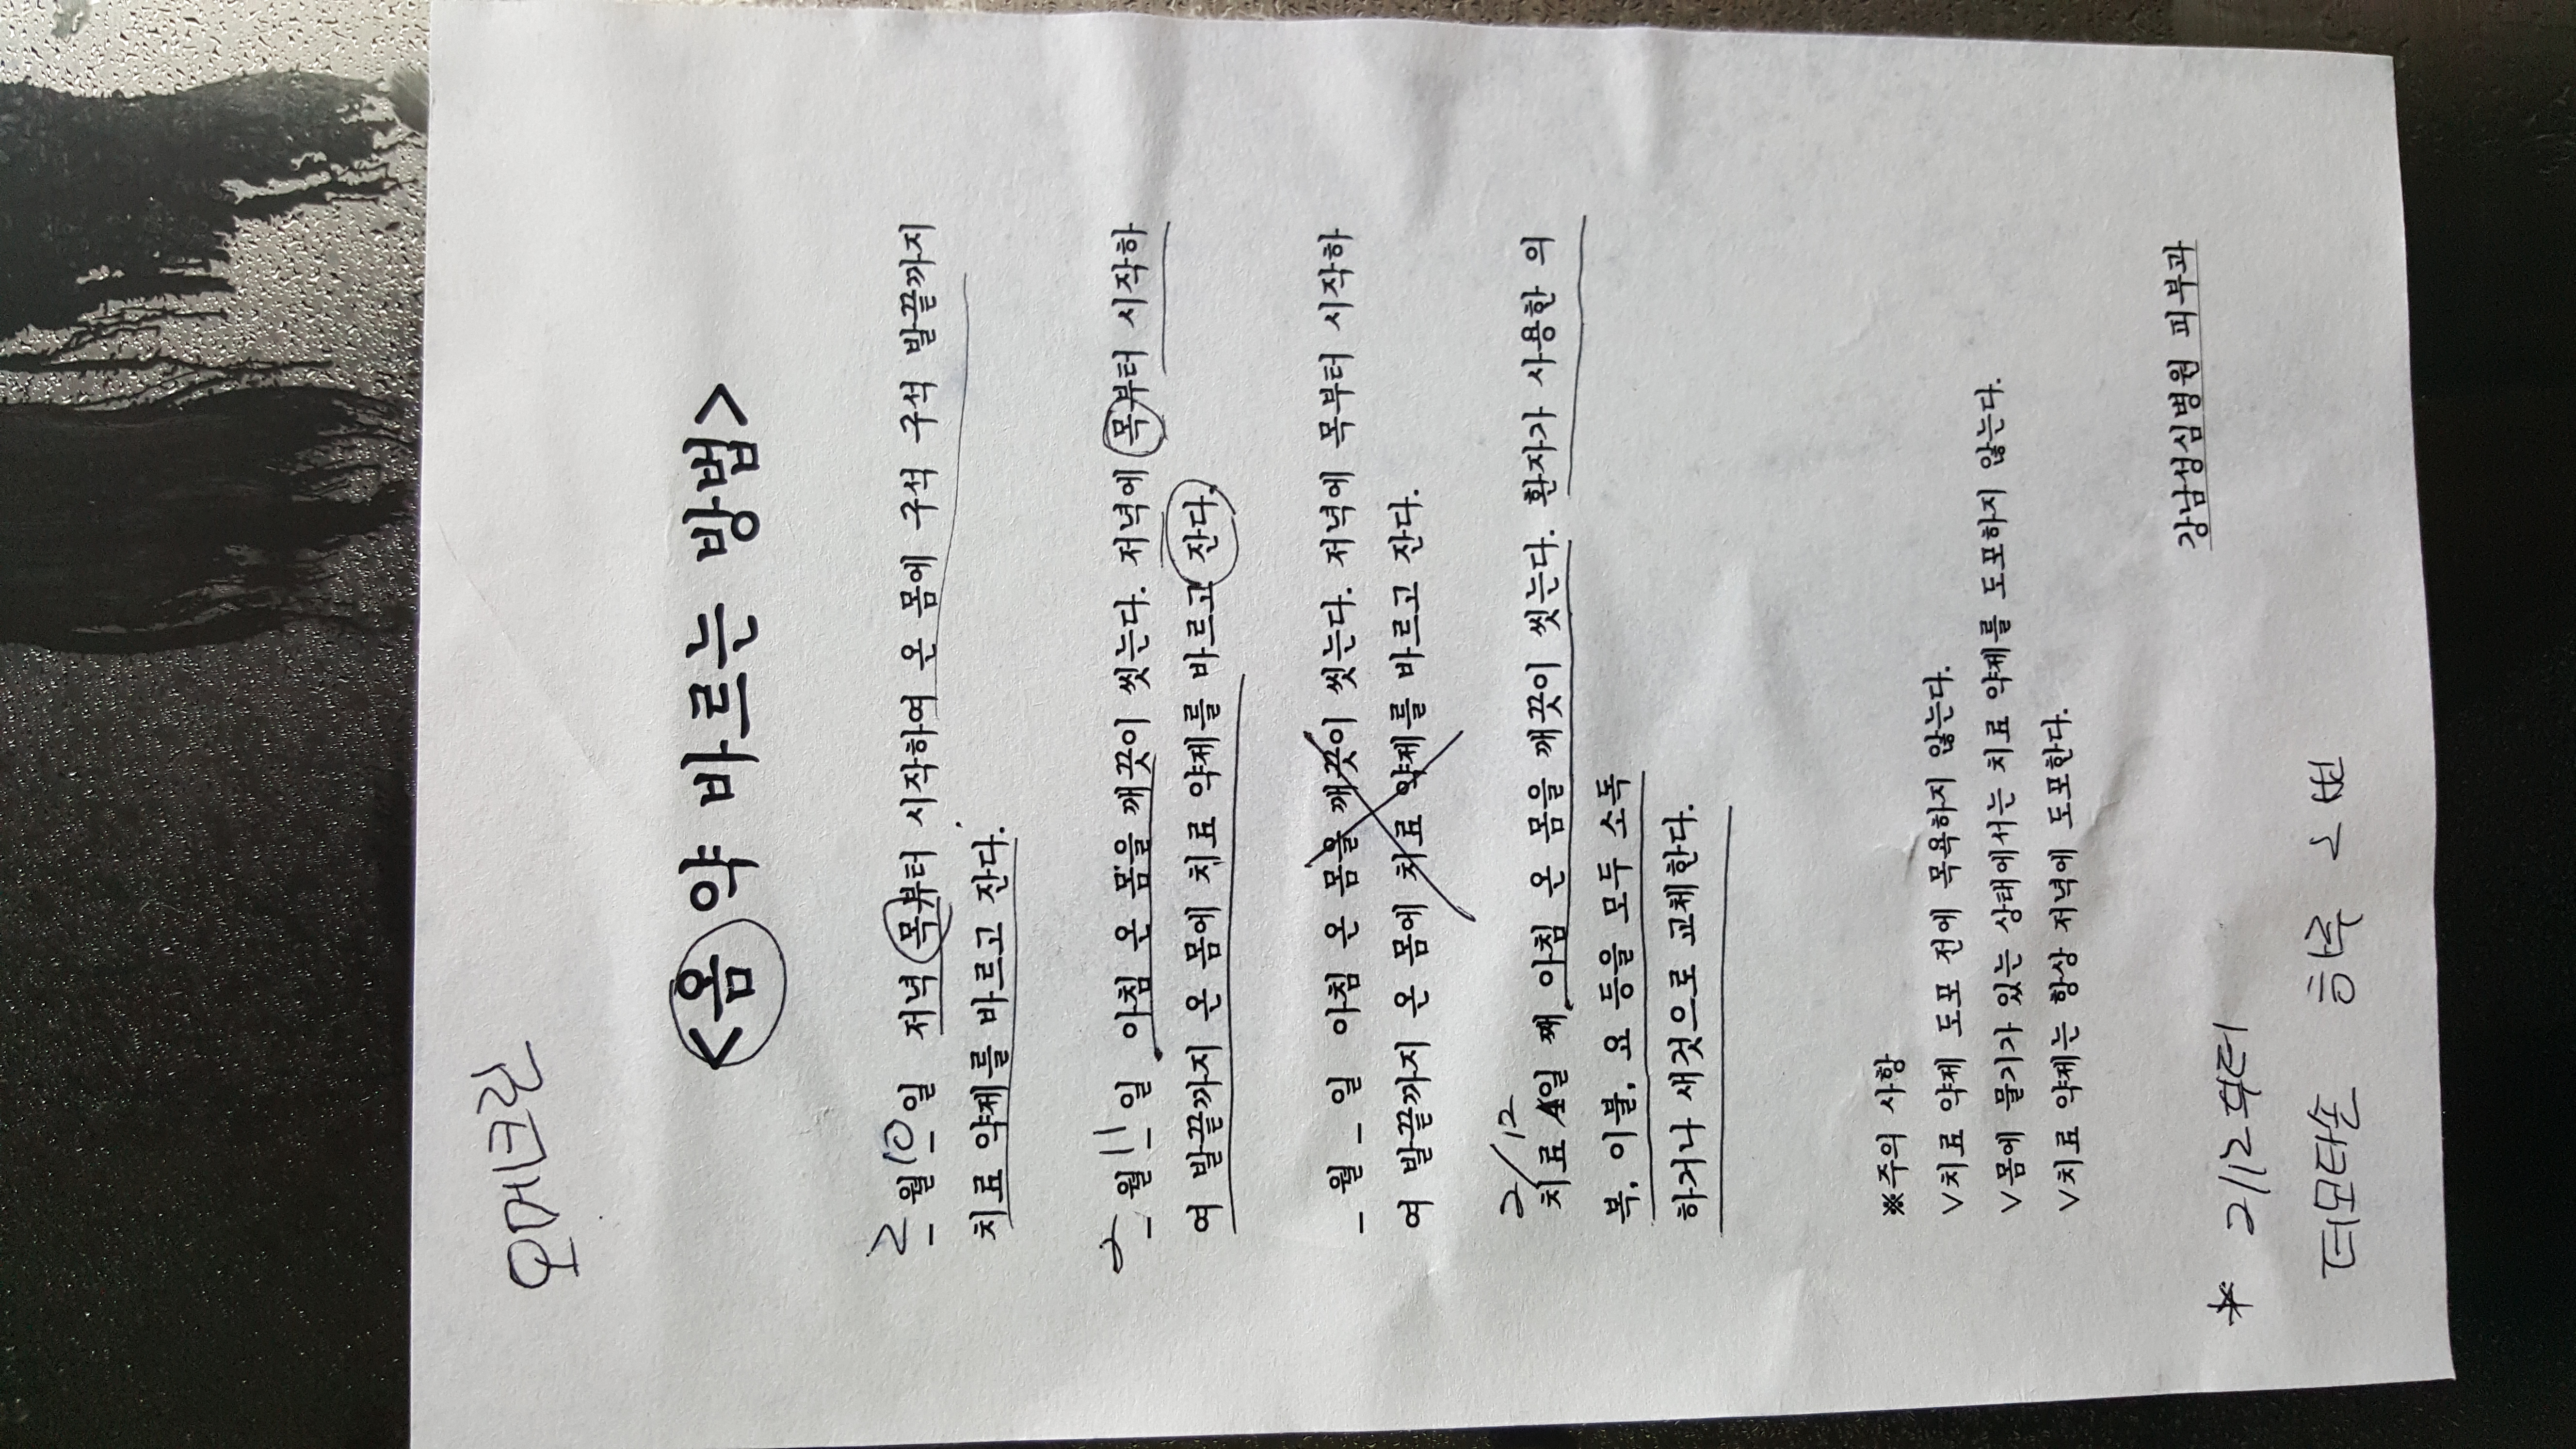 오메크린
<옴 약 바르는 방법>
2월 10일 저녁 목부터 시작하여 온 몸에 구석 구석 발끝까지
치료 약제를 바르고 잔다.
2월 11일 아침 온 몸을 깨끗이 씻는다. 저녁에 목부터 시작하
여 발끝까지 온 몸에 치료 약제를 바르고 잔다.
_월 _일 아침 온 몸을 깨끗이 씻는다. 저녁에 목부터 시작하
여 발끝까지 온 몸에 치료 약제를 바르고 잔다.
2/12
치료 4일 째, 아침 온 몸을 깨끗이 씻는다. 환자가 사용한 의
복, 이불, 요 등을 모두 소독
하거나 새것으로 교체한다.
※주의 사항
∨치료 약제 도포 전에 목욕하지 않는다.
∨몸에 물기가 있는 상태에서는 치료 약제를 도포하지 않는다.
∨치료 약제는 항상 저녁에 도포한다.
강남성심병원 피부과
* 2/12부터
더모타손 하루 2번